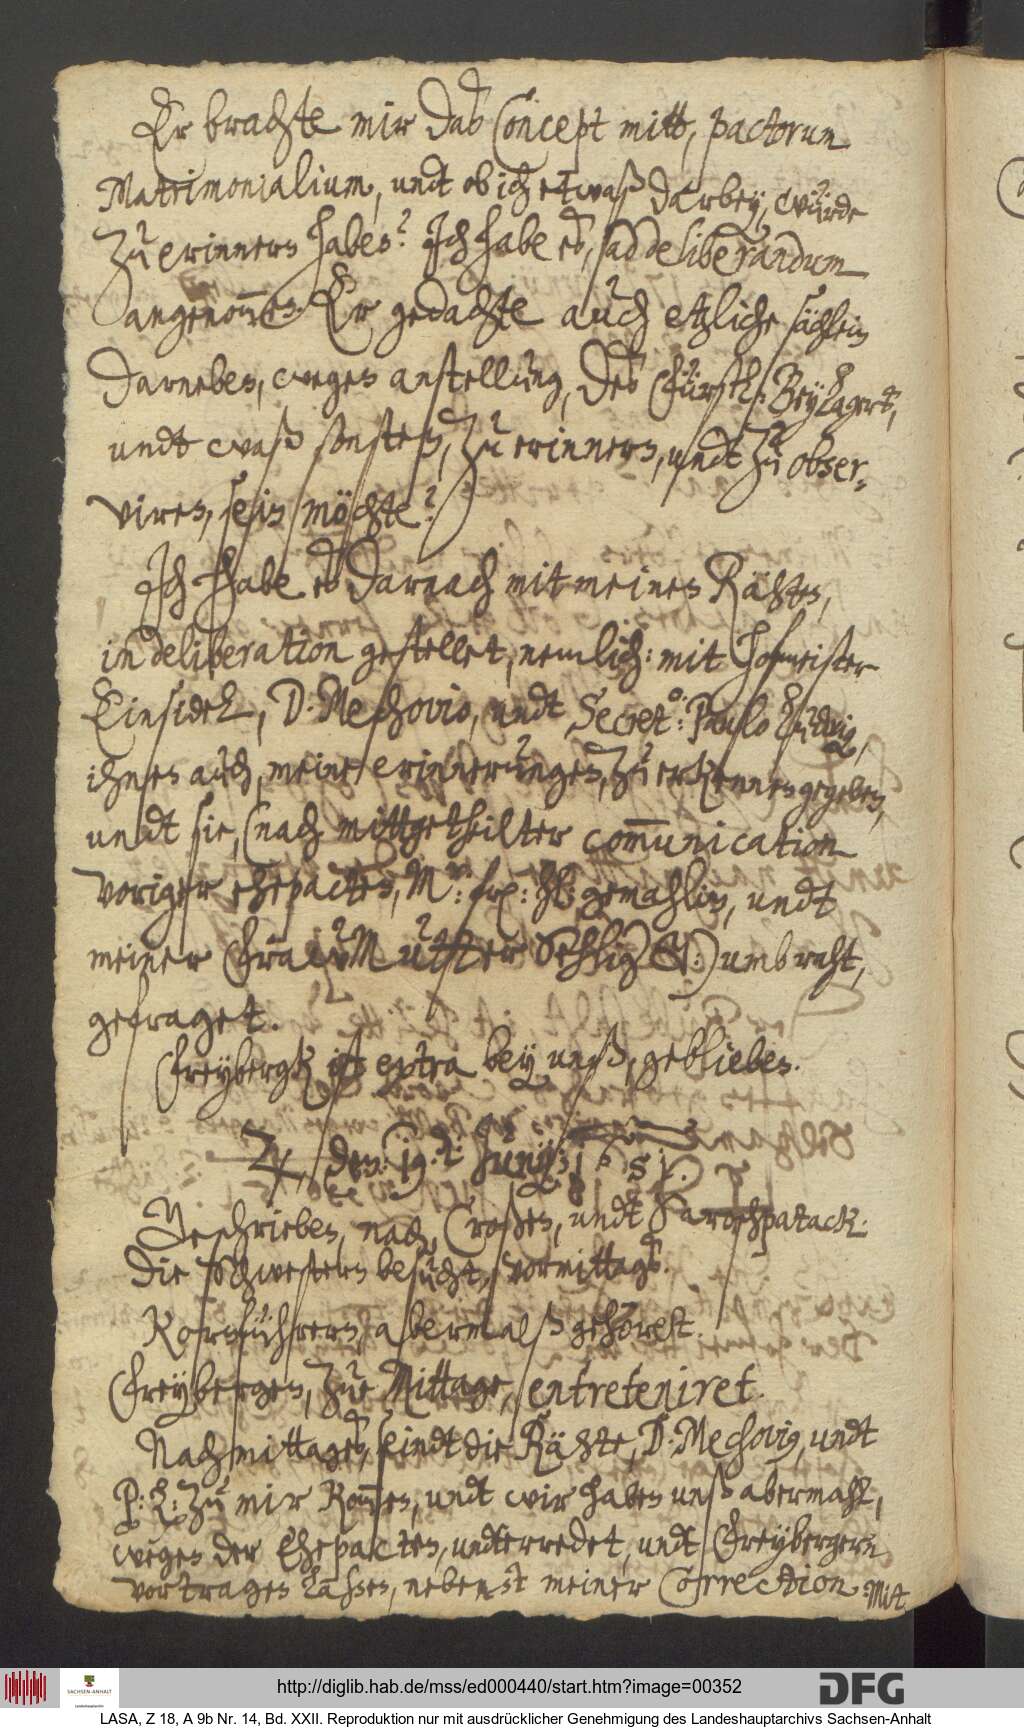 Er brachte mir das Concept mitt, pactorum
Matrimonialium, undt ob ich etwaß darbey, würde
zu erinnern haben? Ich habe es, ad deliberandum
angenom̅en. Er gedachte auch etzliche sächlein
darneben, wegen anstellung, des Fürstl: Beylagers,
undt waß sonsten, zu erinnern, undt zu obser-
viren, sein möchte?
Ich habe es darnach mit meinen Rähten,
in deliberation gestellet, nemlich: mit Hofmeister
Einsidel, D. Mechovio, undt Secret.o: Paulo Ludwig,
ihnen auch, meine erinnerungen, zu erkennen gegeben,
undt sie, (nach mittgetheilter com̅unication
voriger ehepacten, M: fr: hl: gemahlin, undt
meiner Fraw Mutter Sehlig: S:) umb raht,
gefraget.
Freybergk ist extra bey unß, geblieben.
♃ den: 19. Junij: 1651.
Geschrieben, nach Croßen, undt Saroschpatack.
Die Schwestern besucht, vormittags.
Kornführern, abermalß gehöret.
Freybergen, zue Mittage, entreteniret.
Nachmittages, seindt die Rähte, D. Mechovig, undt
P: L: zu mir kom̅en, undt wir haben unß abermahl,
wegen der Ehepacten, undterredet, undt Freybergern
vortragen laßen, nebenst meiner Correction
Mit
http://diglib.hab.de/mss/ed000440/start.htm?image=00352
SACHSEN-ANHALT
Landeshauptarchiv
DFG
LASA, Z 18, A 9b Nr. 14, Bd. XXII. Reproduktion nur mit ausdrücklicher Genehmigung des Landeshauptarchivs Sachsen-Anhalt